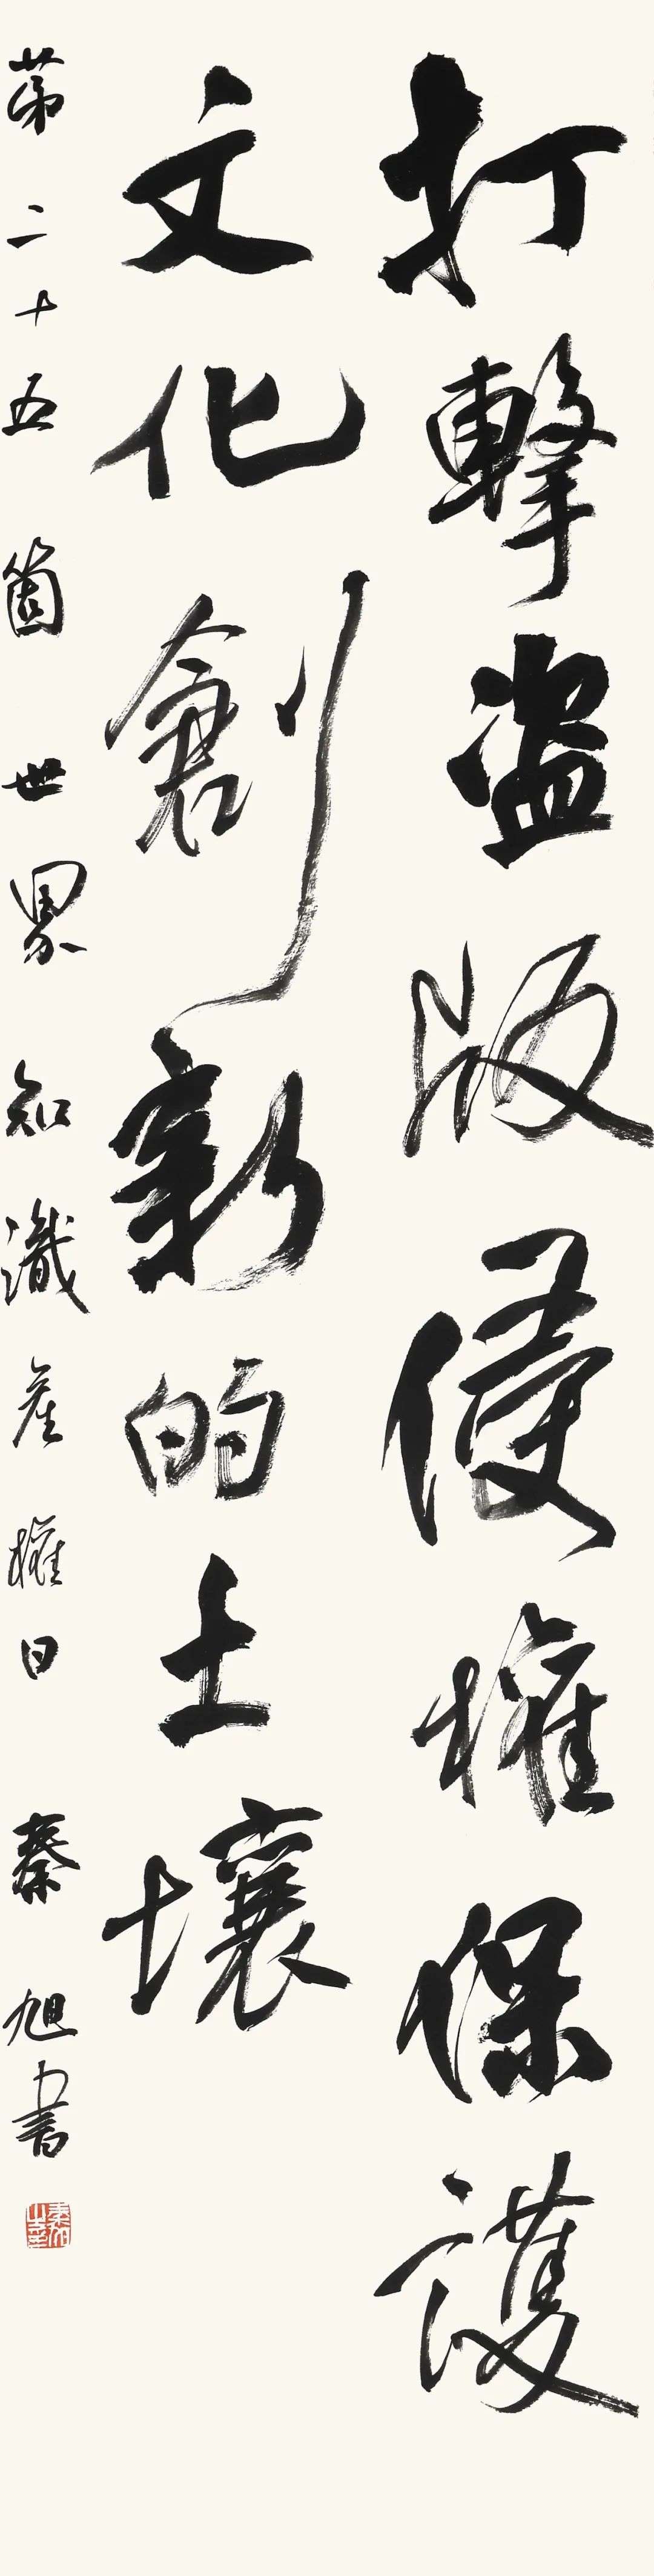 打擊盗版侵權保護
文化創新的土壤
第二十五箇世界知識産權日 秦旭書